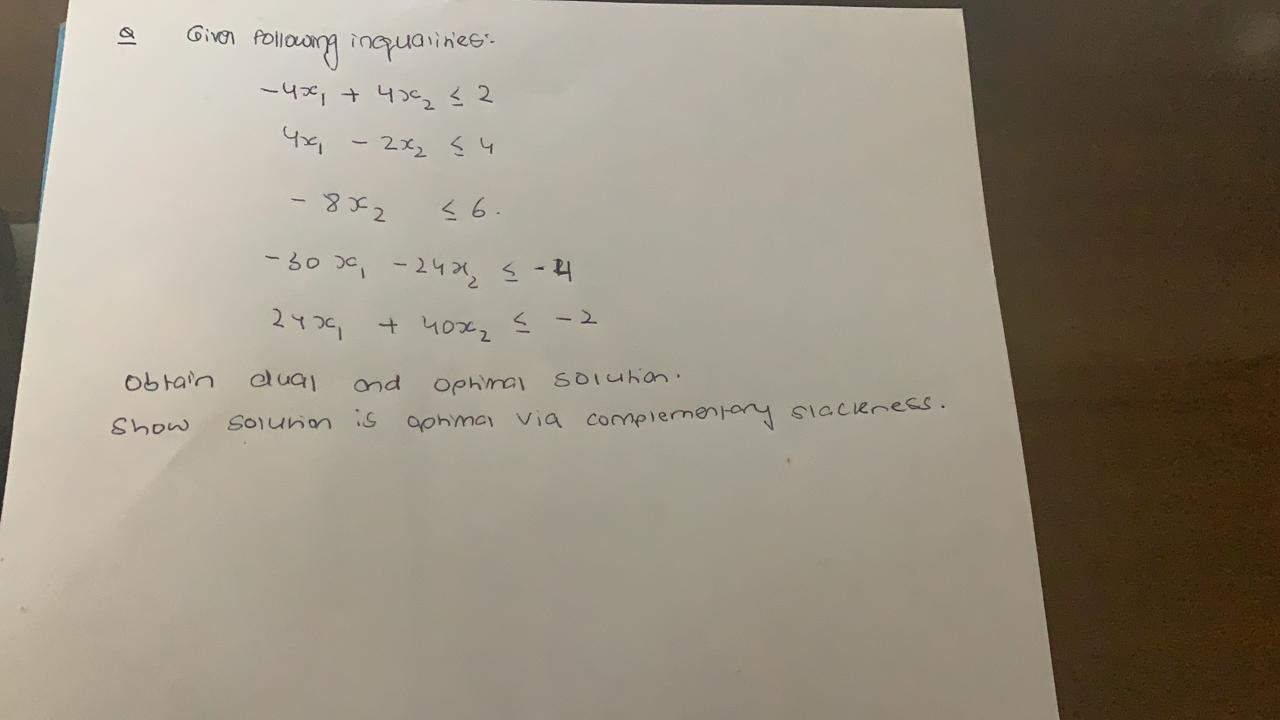 Q Given following inqualities:-
-4x₁ + 4x₂ ≤ 2
4x₁ - 2x₂ ≤ 4
- 8x₂ ≤ 6.
-30x₁ - 24x₂ ≤ -4
24x₁ + 40x₂ ≤ -2
Obtain dual and optimal solution.
Show solution is optimal via complementary slackness.